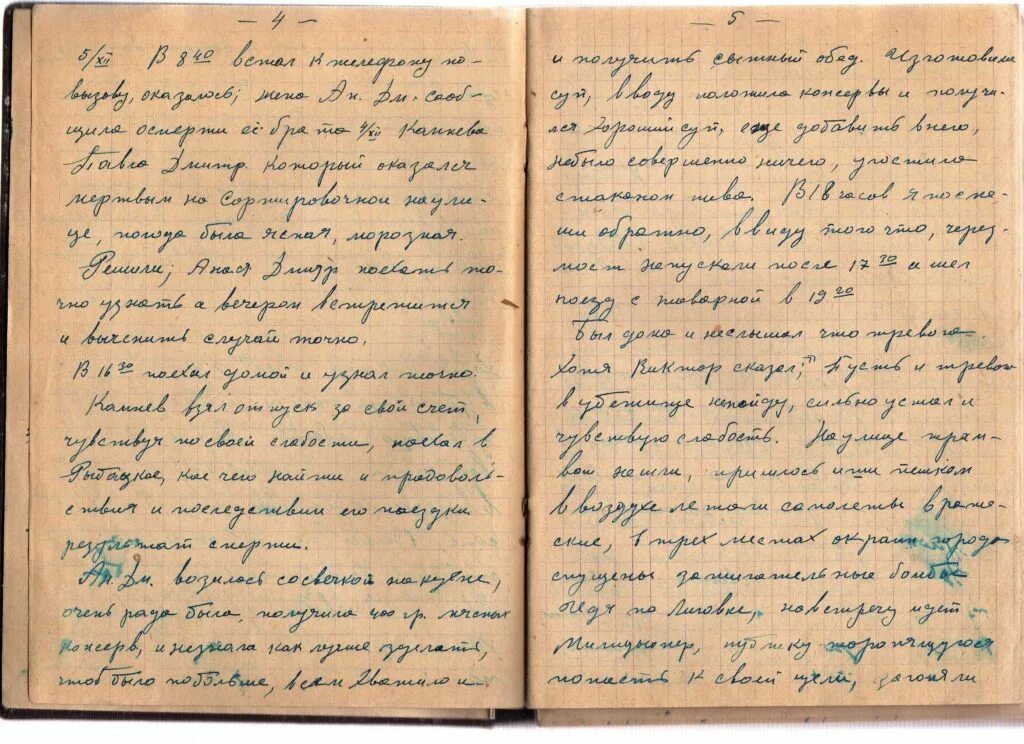 — 4 —
5/XII В 8 40 встал к телефону по-
вызову, оказалось; жена Ан. Дм. сооб-
щила осмерти её брата 4/XII Камнева
Павла Дмитр. который оказался
мертвым на Сортировочной наули-
це, погода была ясная, морозная.
Решили; Анаст Дмитр поехать то-
чно узнать а вечером встретится
и выяснить случай точно.
В 16 30 поехал домой и узнал точно.
Камнев взял отпуск за свой счет,
чувствуя посвоей слабости, поехал в
Рыбацкое, кое чего найти и продоволь-
ствия и последствии его поездки
результат смерти.
Ан. Дм. возилась сосвечкой накухне,
очень рада была, получила 400 гр. мясных
консерв, и незнала как лучше зделать,
чтоб было побольше, всем хватило и-
— 5 —
и получить сытный обед. Изготовили
суп, в воду положила консервы и получи-
лся хороший суп, еще добавить внего,
небыло совершенно ничего, угостила
стаканом пива. В 18 часов я поспе-
ши обратно, ввиду того что, через-
мост непускали после 17 30 а шел
поезд с товарной в 19 20
Был дома и неслышал что тревога.
Хотя Виктор сказал; "Пусть и тревога
в убежище непойду, сильно устал и
чувствую слабость. На улице трам-
ваи нешли, пришлось идти пешком
в воздухе летали самолеты враже-
ские, в трех местах окраин города
спущены зажигательные бомбы
Идя по Лиговке, навстречу идет
Милиционер, публику торопящуюся
попасть к своей цели, загоняли